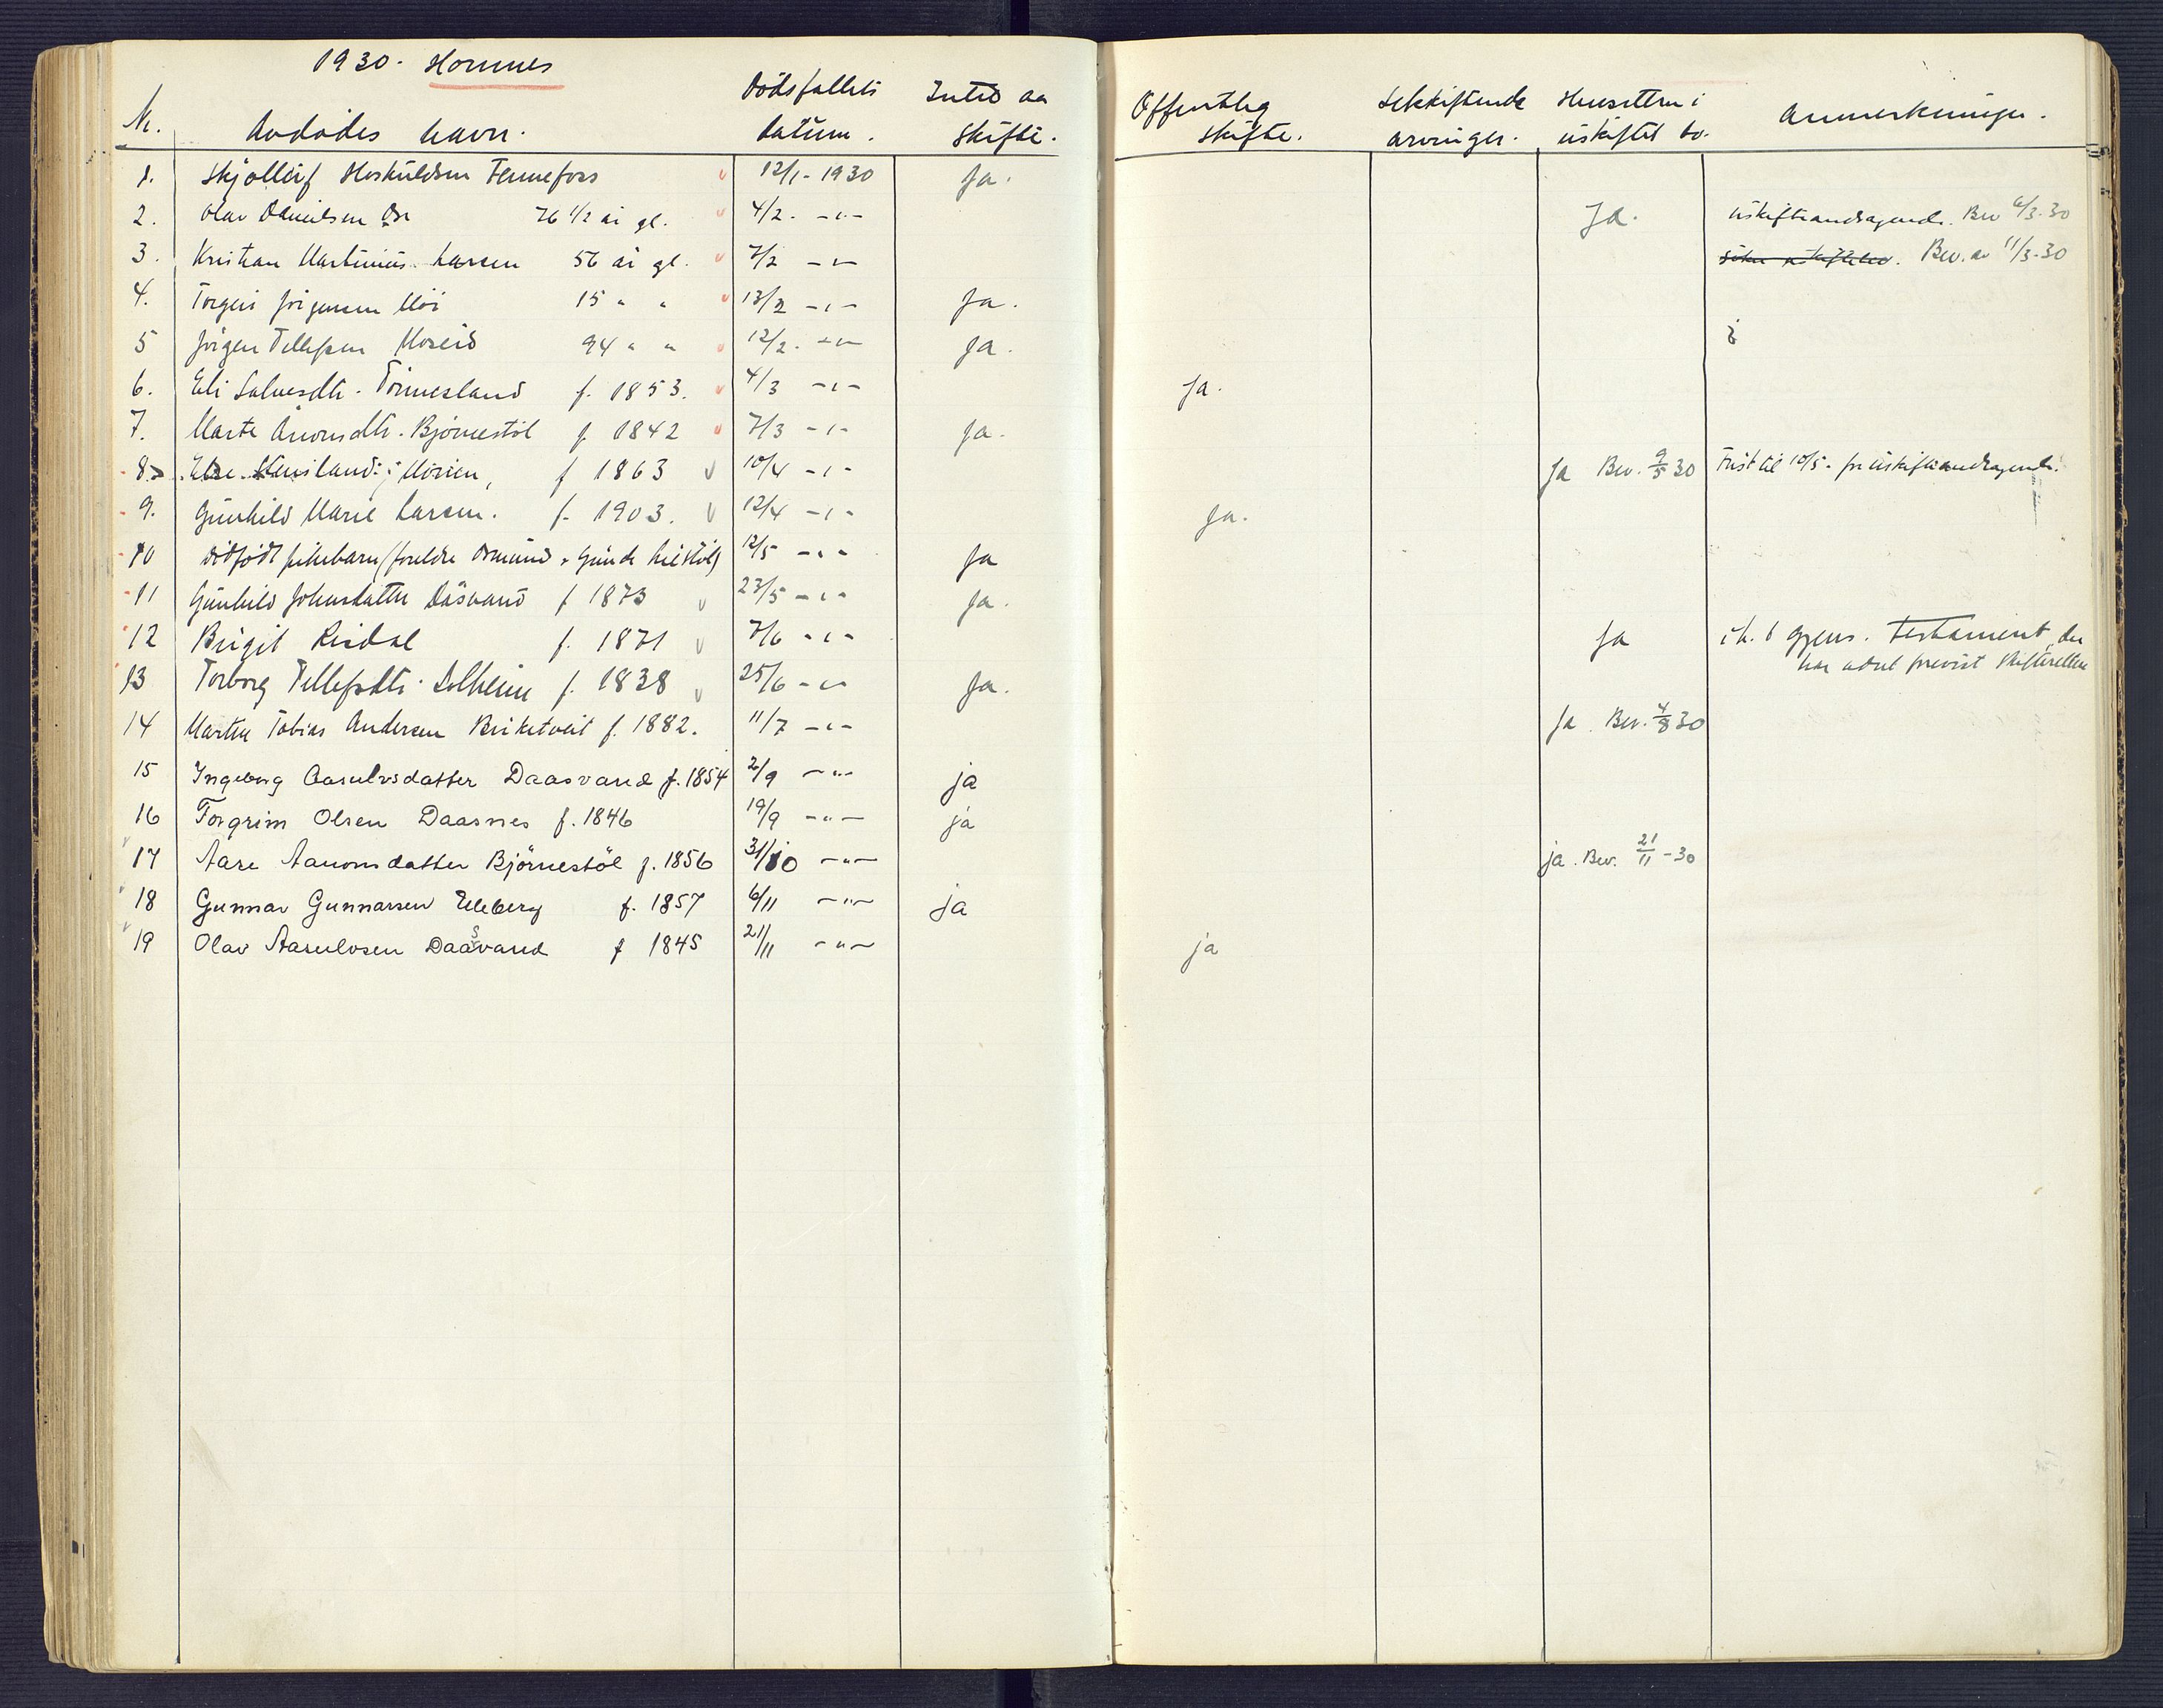 1930. Hornnes
Nr. Avdødes navn. Dødsfallets datum. Intet av skifte. Offentlig skifte. Selvskiftende arvinger. Husetters i uskiftet bo. Anmerkninger.
1. Skjolleif Hoskuldsen Fennefoss 12/1 - 1930 Ja.
2. Olav Danielsen 76 1/2 år gl. 4/2. -"- Ja. uskifteandragende. Bev 6/3-30
3. Kristian Martinius Larsen 56 år gl. 7/2 -"- Bev. av 11/3-30
4. Torgeir Jørgensen Moi 15 " " 13/2 -"- Ja.
5 Jørgen Tellefsen Moseid 94 " " 12/2. -"- Ja.
6. Eli Salvesdtr. Tønnesland f. 1853. 4/3 -"- Ja.
7. Marte Ånonsdtr. Bjørnestøl f. 1842 7/3 -"- Ja.
8. f 1863 10/4 -"- Ja Bev. 9/5 30 Frist til 10/5. for uskifteandragende.
9. Gunhild Marie Larsen. f. 1903. 12/4 -"- Ja.
10 Dødfødt pikebarn (foreldre Osmund og Gunda) 12/5 -"- Ja
11 Gunhild Johnsdatter Dåsvand f 1873 23/5 -"- Ja.
12 Birgit Risdal f. 1871 7/6 -"- Ja i h. t gjens. testament, der har været forevist skifteretten
13 Torborg Tellefsdtr. Solheim f. 1838 25/6 -"- Ja.
14 Martin Tobias Andersen Birketveit f. 1882. 11/7 -"- Ja. Bev. 4/8 30
15 Ingeborg Aasulvsdatter Daasvand f. 1854 2/9 -"- ja
16 Torgrim Olsen Daasnes f. 1846 19/9 -"- ja
17 Aase Aanonsdatter Björnestöl f. 1856 31/10 -"- ja. Bev. 21/11 - 30
18 Gunnar Gunnarsen Uleberg f. 1857 6/11 -"- ja
19 Olav Aasulvsen Daasvand f 1845 21/11 -"- ja